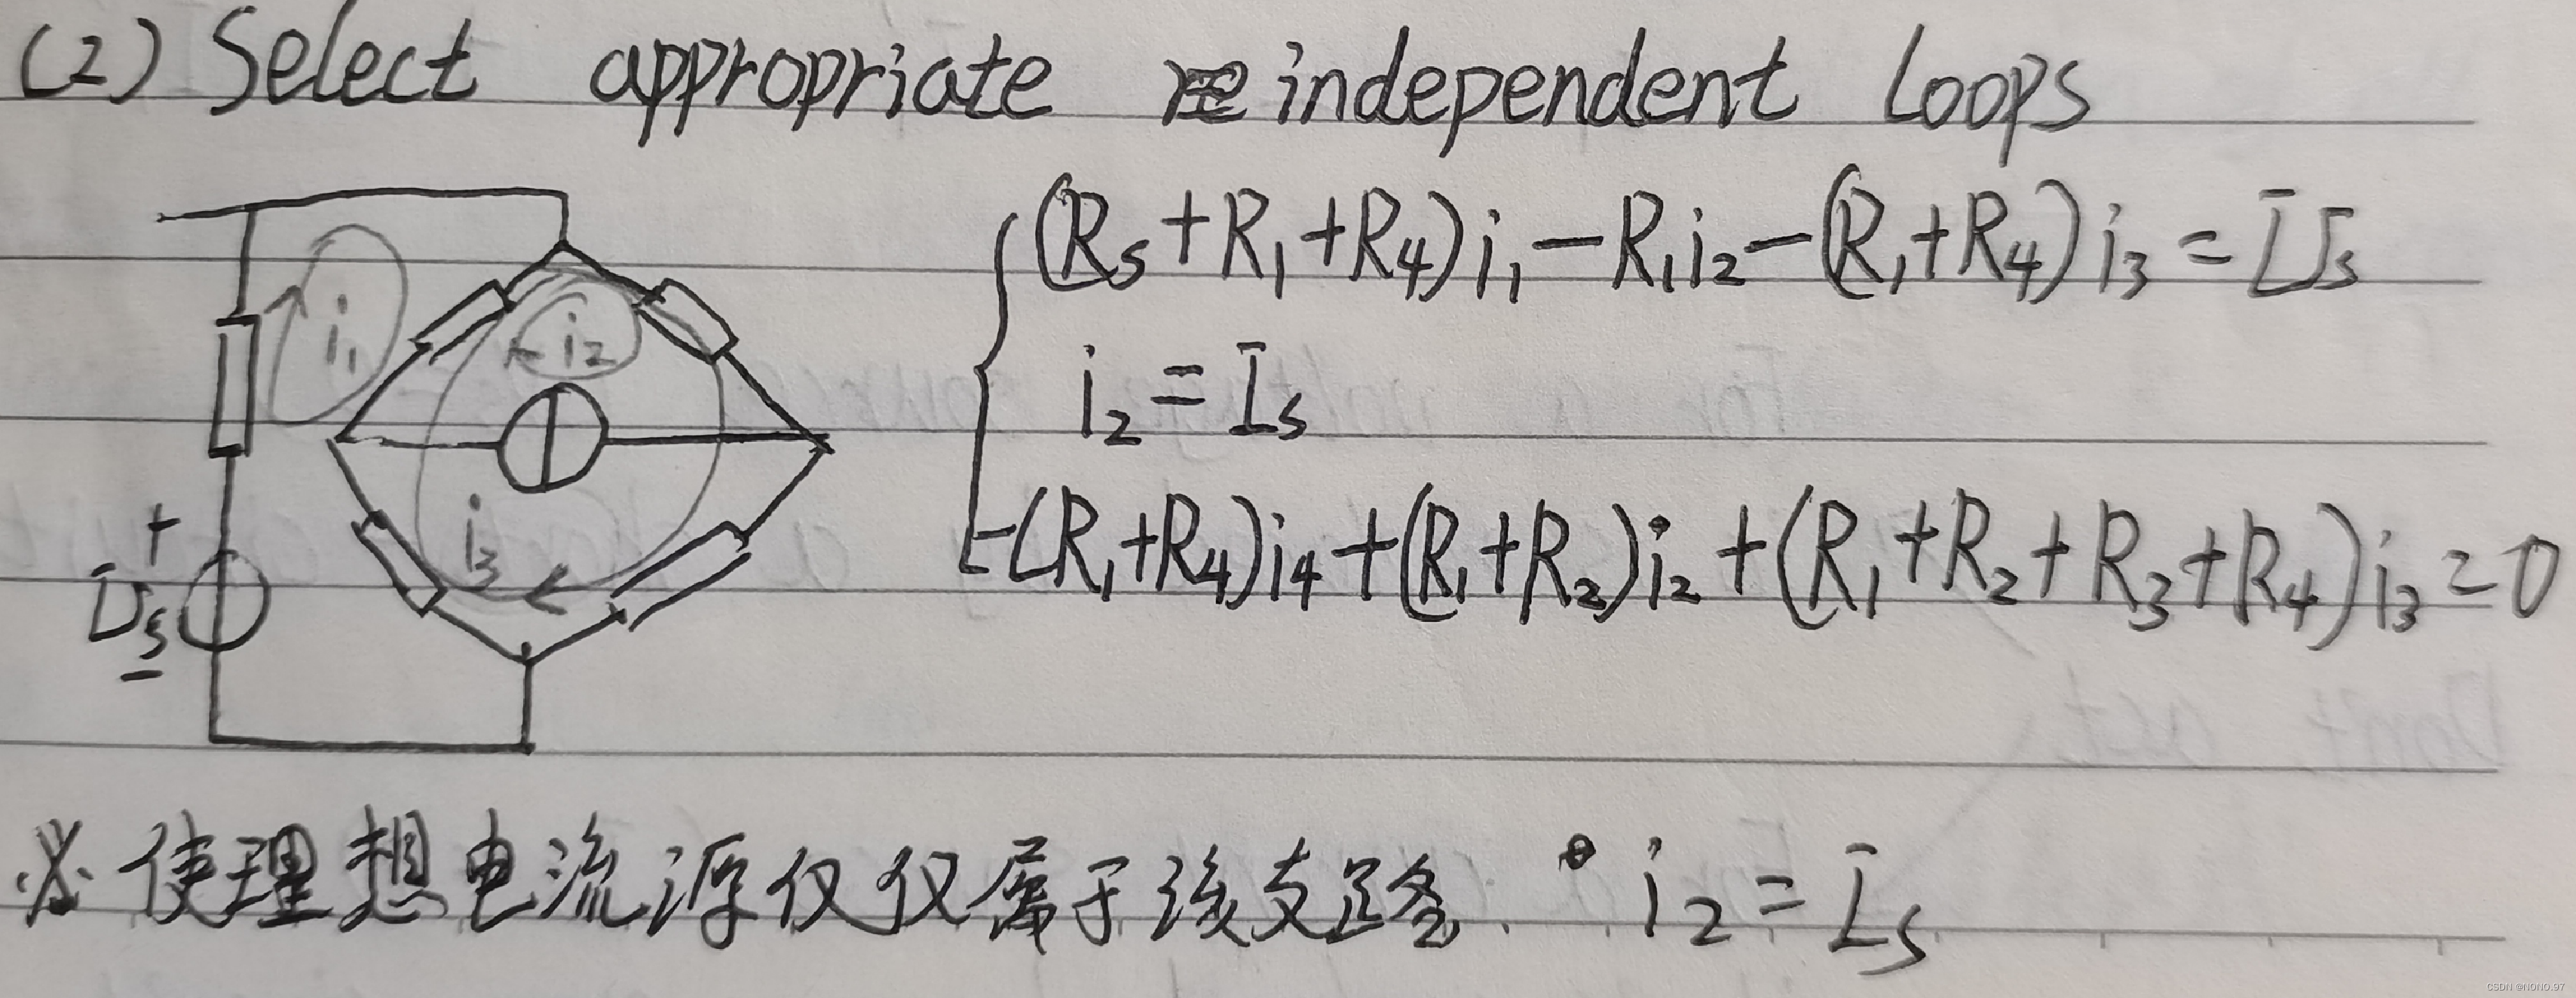 (2) Select appropriate independent Loops
(Rs+R₁+R₄)i₁-R₁i₂-(R₁+R₄)i₃=Us
i₁
i₂
i₂=Is
i₃
-(R₁+R₄)i₄+(R₁+R₂)i₂+(R₁+R₂+R₃+R₄)i₃=0
+
Us
-
※使理想电流源仅仅属于该支路. i₂=Is
CSDN @NONO.97